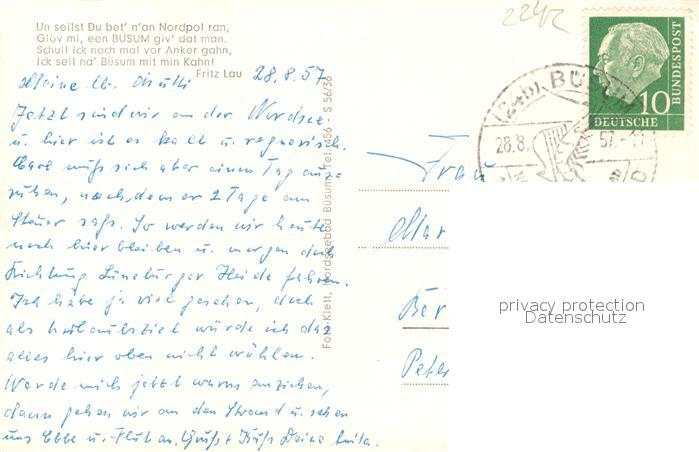 Un seilst Du bet' n'an Nordpol ran,
Glöv mi, een BÜSUM giv' dat man.
Schull ick noch mal vor Anker gahn,
Ick seil na' Büsum mit min Kahn!
Fritz Lau
2242
Meine lb. Mutti 28.8.57
Jetzt sind wir an der Nordsee
u. hier ist es kalt u. regnerisch.
muß sich aber einen Tag auszu-
ruhen, nachdem er 2 Tage am
Steuer saß. So werden wir heute
noch hier bleiben u. morgen dann
Richtung Lüneburger Heide fahren.
Ich habe ja viel gesehen, doch
als Urlaubsziel würde ich das
alles hier oben nicht wählen.
Werde mich jetzt warm anziehen,
dann gehen wir an den Strand u. sehen
uns Ebbe u. Flut an. Gruß + Kuß Deine Anita.
Foto-Klett, Nordseebad Büsum, Tel. 456 S 56/36
DEUTSCHE
BUNDESPOST
10
(24b) BÜSUM
28.8.57.-11
Frau
Mar
Ber
Peter
privacy protection
Datenschutz